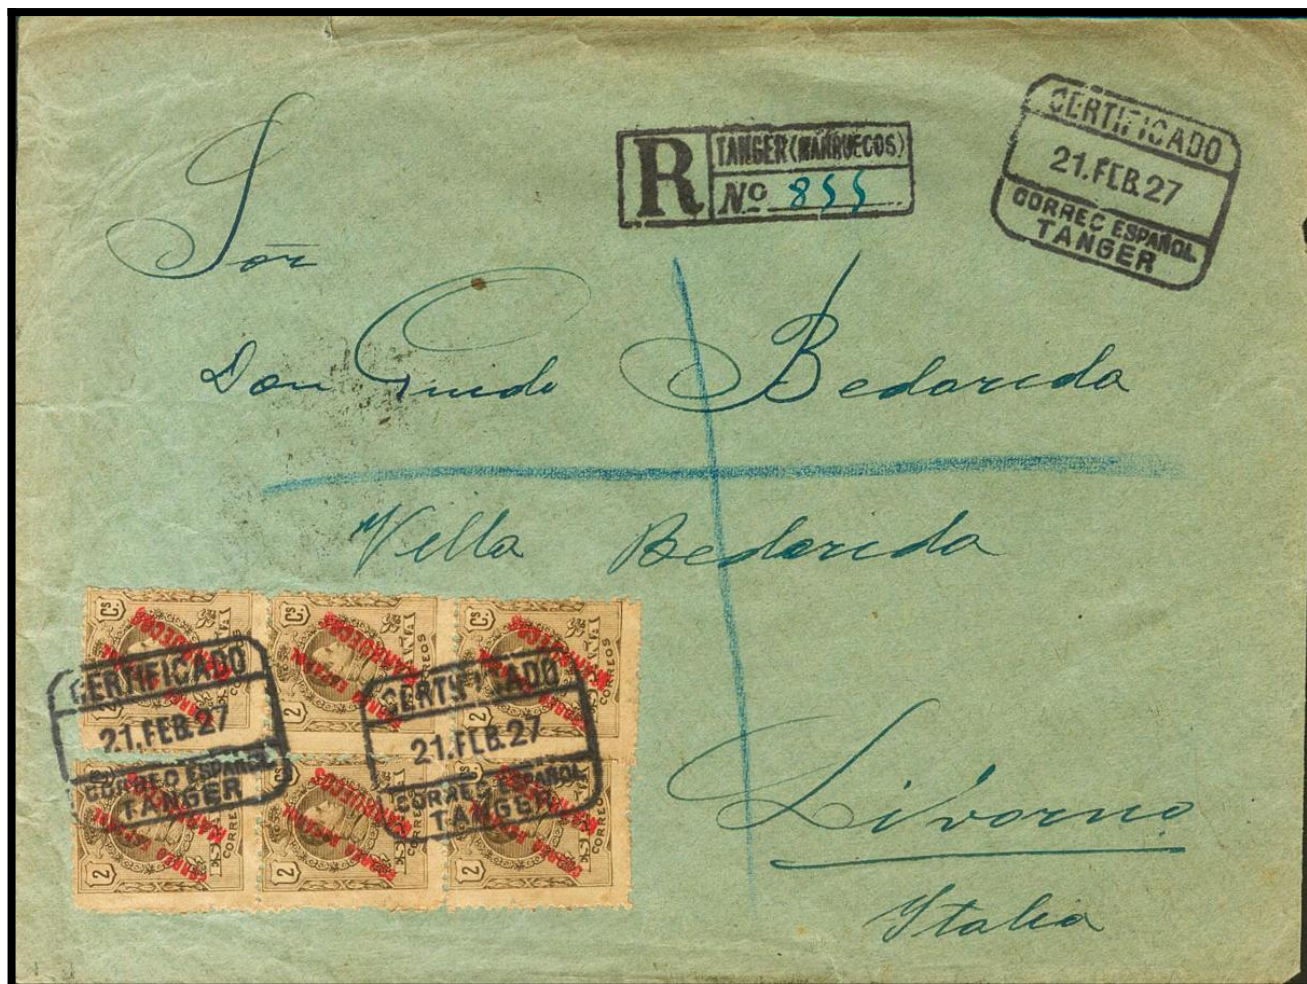 R TANGER (MARRUECOS)
Nº 855
CERTIFICADO
21.FEB.27
CORREO ESPAÑOL
TANGER
Sor
Don Guido Bedarida
Villa Bedarida
Livorno
Italia
CERTIFICADO
21.FEB.27
CORREO ESPAÑOL
TANGER
CERTIFICADO
21.FEB.27
CORREO ESPAÑOL
TANGER
2 Cs
ESPAÑA
CORREOS
CORREO ESPAÑOL
MARRUECOS